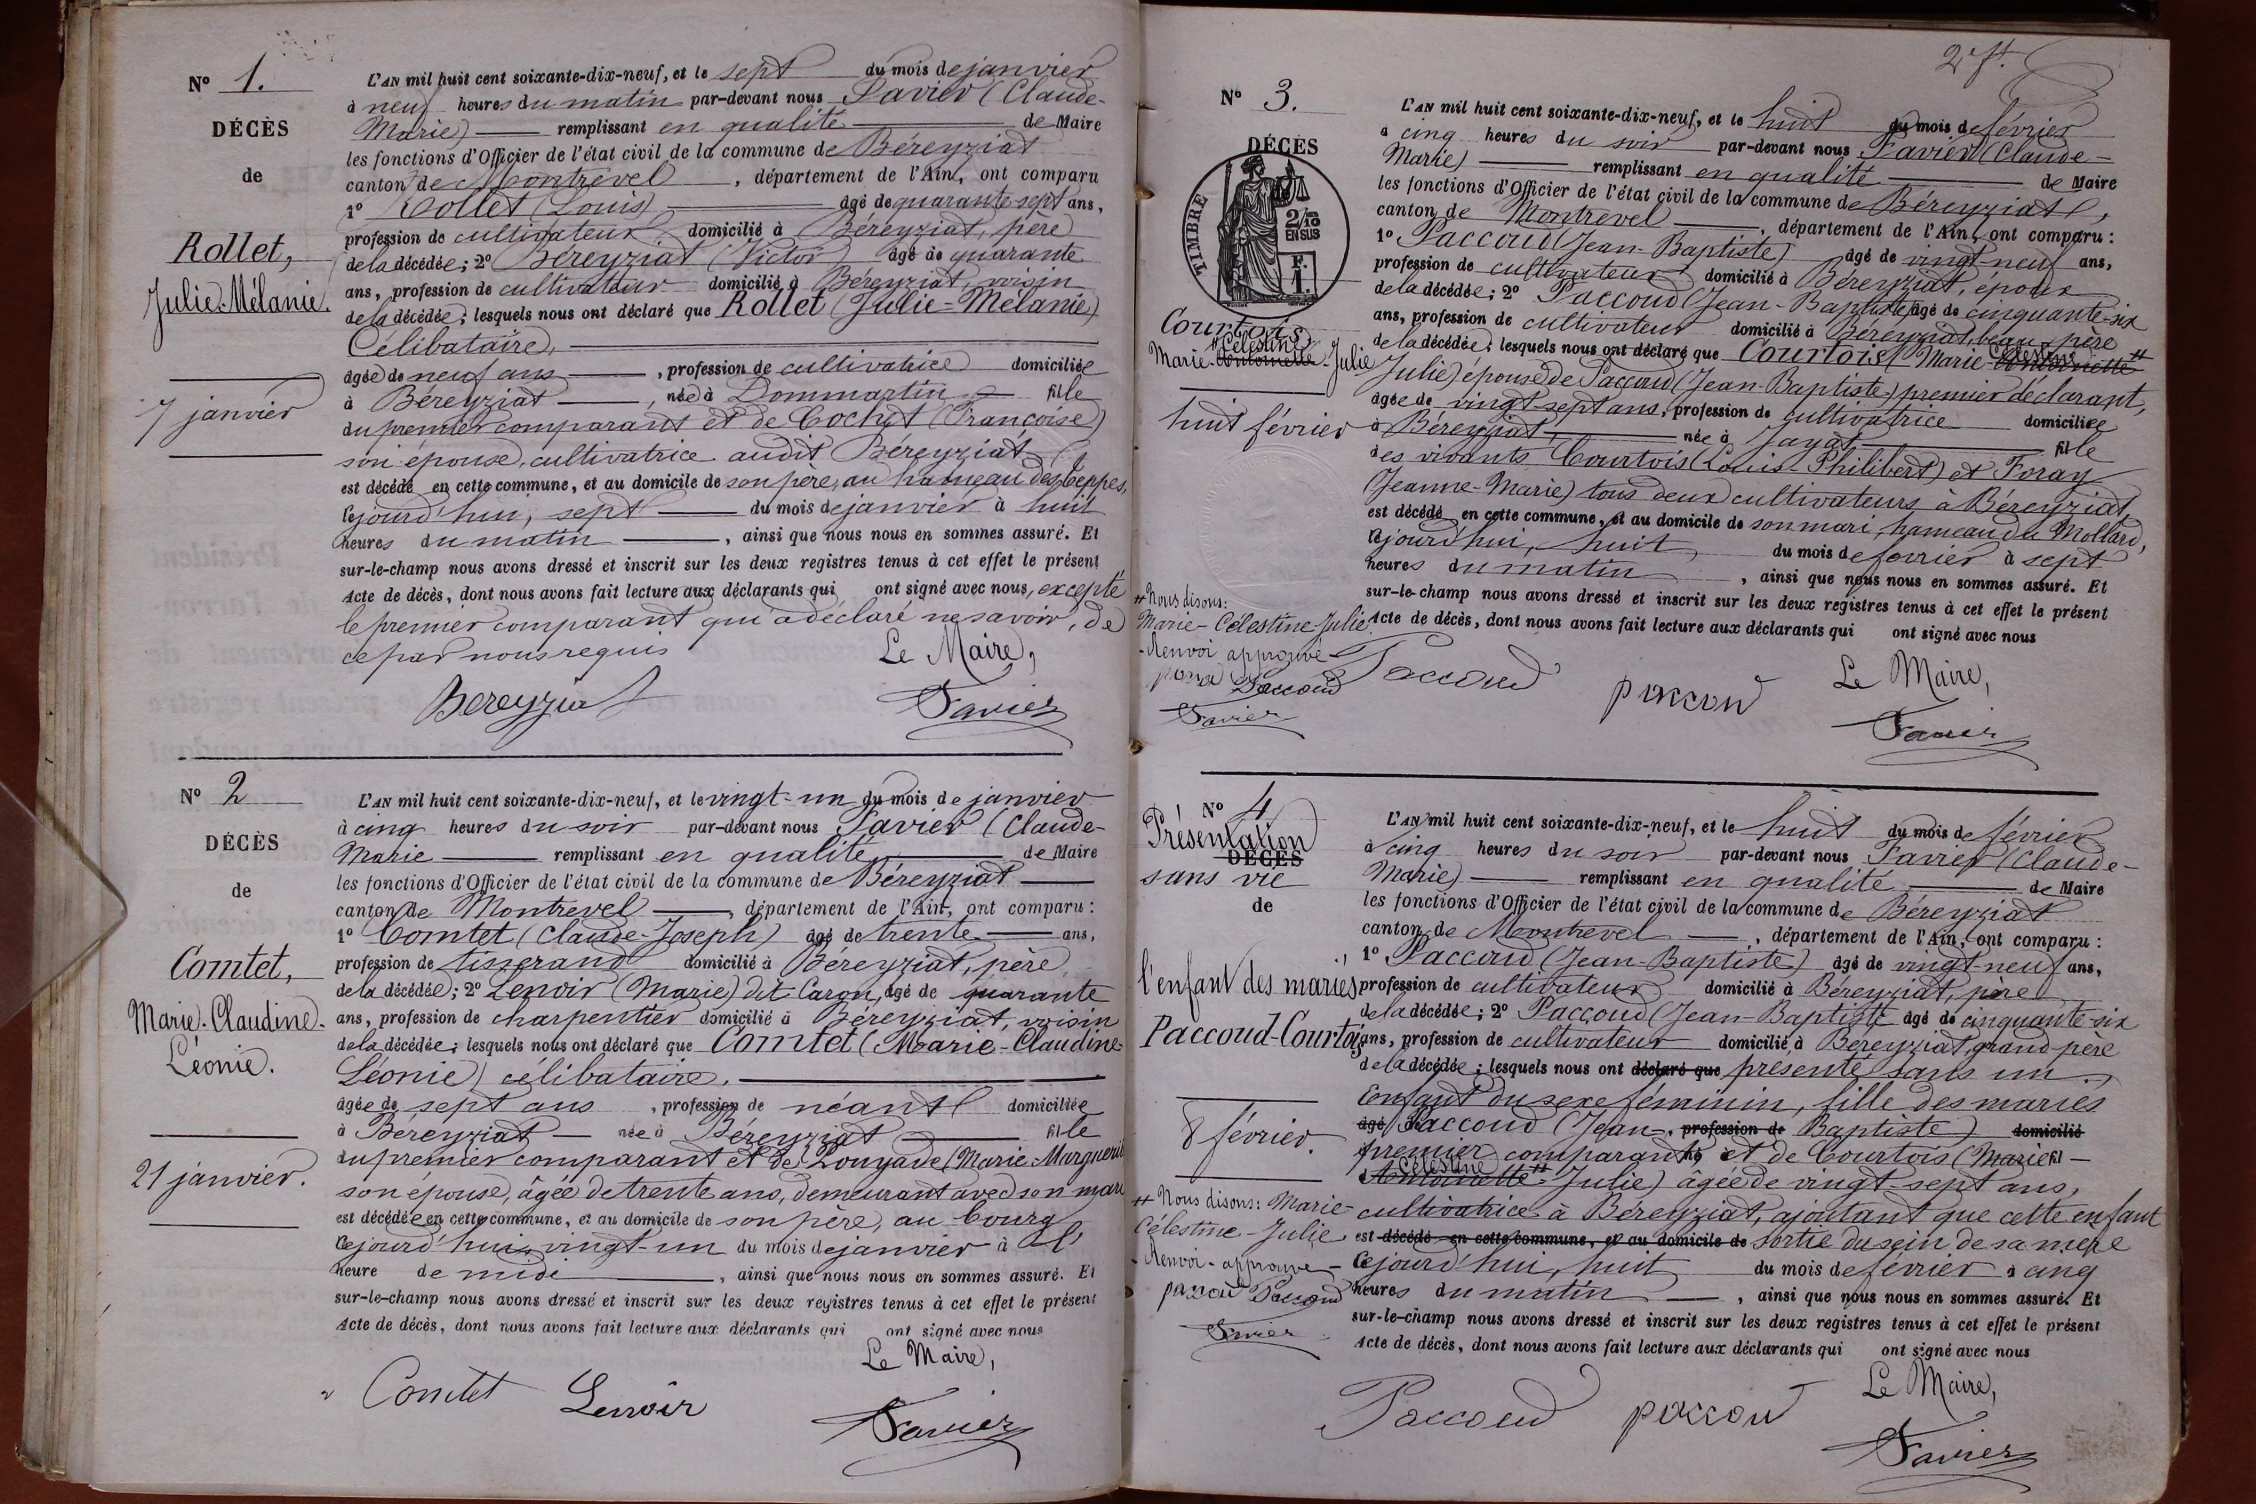 N° 1.
DÉCÈS
de
Rollet,
Julie-Mélanie.
7 janvier
L'AN mil huit cent soixante-dix-neuf, et le sept du mois de janvier
à neuf heures du matin par-devant nous Favier (Claude-
Marie) remplissant en qualité de Maire
les fonctions d'Officier de l'état civil de la commune de Béreyziat
canton de Montrevel, département de l'Ain, ont comparu
1° Rollet (Louis) âgé de quarante sept ans,
profession de cultivateur domicilié à Béreyziat, père
de la décédée; 2° Béreyziat (Victor) âgé de quarante
ans, profession de cultivateur domicilié à Béreyziat, voisin
de la décédée; lesquels nous ont déclaré que Rollet (Julie-Mélanie)
Célibataire,
âgée de neuf ans, profession de cultivatrice domiciliée
à Béreyziat, née à Dommartin fille
du premier comparant et de Cochet (Françoise)
son épouse, cultivatrice audit Béreyziat,
est décédé en cette commune, et au domicile de son père, au hameau des Ceppes,
cejourd'hui, sept du mois de janvier à huit
heures du matin, ainsi que nous nous en sommes assuré. Et
sur-le-champ nous avons dressé et inscrit sur les deux registres tenus à cet effet le présent
Acte de décès, dont nous avons fait lecture aux déclarants qui ont signé avec nous, excepté
le premier comparant qui a déclaré ne savoir, de
ce par nous requis
Le Maire,
Bereyziat
Favier
N° 2
DÉCÈS
de
Comtet,
Marie-Claudine-
Léonie.
21 janvier.
L'AN mil huit cent soixante-dix-neuf, et le vingt-un du mois de janvier
à cinq heures du soir par-devant nous Favier (Claude-
Marie remplissant en qualité de Maire
les fonctions d'Officier de l'état civil de la commune de Béreyziat
canton de Montrevel, département de l'Ain, ont comparu:
1° Comtet (Claude-Joseph) âgé de trente ans,
profession de tisserand domicilié à Béreyziat, père
de la décédée; 2° Lenoir (Marie) dit Caron, âgé de quarante
ans, profession de charpentier domicilié à Béreyziat, voisin
de la décédée; lesquels nous ont déclaré que Comtet (Marie-Claudine-
Léonie) célibataire,
âgée de sept ans, profession de néant domiciliée
à Béreyziat née à Béreyziat fille
du premier comparant et de Pouyade (Marie-Marguerite
son épouse, âgée de trente ans, demeurant avec son mari
est décédée en cette commune, et au domicile de son père, au bourg
cejourd'hui vingt-un du mois de janvier à l'
heure de midi, ainsi que nous nous en sommes assuré. Et
sur-le-champ nous avons dressé et inscrit sur les deux registres tenus à cet effet le présent
Acte de décès, dont nous avons fait lecture aux déclarants qui ont signé avec nous
Le Maire,
Comtet Lenoir
Favier
2e ft.
N° 3.
DÉCÈS
TIMBRE
2/10 EN SUS
F. 1.
Courtois
Célestine
Marie-Antoinette-Julie
huit février
L'AN mil huit cent soixante-dix-neuf, et le huit du mois de février
à cinq heures du soir par-devant nous Favier (Claude-
Marie) remplissant en qualité de Maire
les fonctions d'Officier de l'état civil de la commune de Béreyziat,
canton de Montrevel, département de l'Ain, ont comparu:
1° Paccoud (Jean-Baptiste) âgé de vingt-neuf ans,
profession de cultivateur domicilié à Béreyziat, époux
de la décédée; 2° Paccoud (Jean-Baptiste) âgé de cinquante-six
ans, profession de cultivateur domicilié à Béreyziat, beau-père
de la décédée; lesquels nous ont déclaré que Courtois (Marie-Célestine Antoinette #
Julie) épouse de Paccoud (Jean-Baptiste) premier déclarant,
âgée de vingt-sept ans, profession de cultivatrice domiciliée
à Béreyziat, née à Jayat fille
des vivants Courtois (Louis-Philibert) et Foray
(Jeanne-Marie) tous deux cultivateurs à Béreyziat,
est décédé en cette commune, et au domicile de son mari, hameau du Mollard,
cejourd'hui, huit, du mois de février à sept
heures du matin, ainsi que nous nous en sommes assuré. Et
sur-le-champ nous avons dressé et inscrit sur les deux registres tenus à cet effet le présent
Acte de décès, dont nous avons fait lecture aux déclarants qui ont signé avec nous
# Nous disons:
Marie-Célestine Julie.
- Renvoi approuvé -
Paccoud
Favier
Paccoud paccoud
Le Maire,
Favier
N° 4
Présentation
DÉCÈS
sans vie
de
l'enfant des mariés
Paccoud-Courtois
8 février.
# Nous disons: Marie-
Célestine-Julie
- Renvoi - approuvé -
paccoud Paccoud
Favier
L'AN mil huit cent soixante-dix-neuf, et le huit du mois de février
à cinq heures du soir par-devant nous Favier (Claude-
Marie) remplissant en qualité de Maire
les fonctions d'Officier de l'état civil de la commune de Béreyziat
canton de Montrevel, département de l'Ain, ont comparu:
1° Paccoud (Jean-Baptiste) âgé de vingt-neuf ans,
profession de cultivateur domicilié à Béreyziat, père
de la décédée; 2° Paccoud (Jean-Baptiste âgé de cinquante-six
ans, profession de cultivateur domicilié à Béreyziat, grand-père
de la décédée; lesquels nous ont déclaré que présenté sans un
Enfant du sexe féminin, fille des mariés
âgé Paccoud (Jean-, profession de Baptiste) domicilié
premier comparant et de Courtois (Marie- fil
Célestine
Antoinette # Julie) âgée de vingt-sept ans,
cultivatrice à Béreyziat, ajoutant que cette enfant
est décédé en cette commune, et au domicile de sortie du sein de sa mère
Cejourd'hui, huit du mois de février à cinq
heures du matin, ainsi que nous nous en sommes assuré. Et
sur-le-champ nous avons dressé et inscrit sur les deux registres tenus à cet effet le présent
Acte de décès, dont nous avons fait lecture aux déclarants qui ont signé avec nous
Le Maire,
Paccoud paccoud
Favier